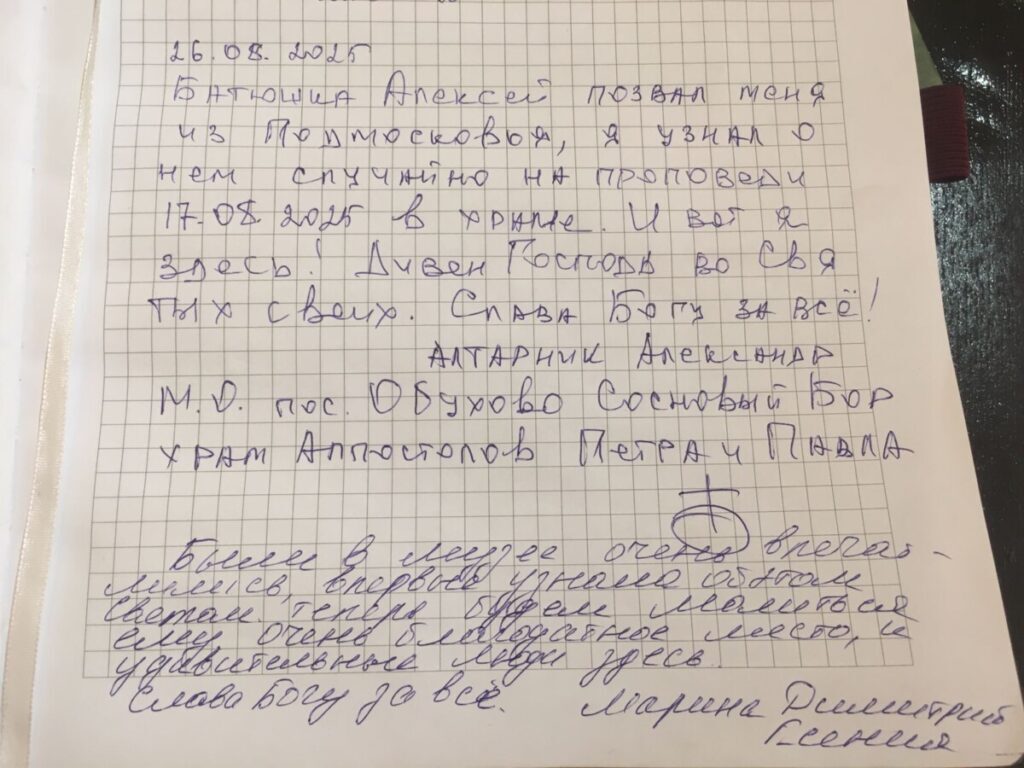 26.08.2025
Батюшка Алексей позвал меня
из Подмосковья, я узнал о
нем случайно на проповеди
17.08.2025 в храме. И вот я
здесь! Дивен Господь во Свя
тых своих. Слава Богу за всё!
Алтарник Александр
М.О. пос. Обухово Сосновый Бор
храм Аппостолов Петра и Павла
Были в музее очень впечат-
лились, впервые узнала об этом
святом. теперь будем молиться
ему, очень благодатное место, и
удивительные люди здесь.
Слава Богу за всё. Марина Димитрий
Есения